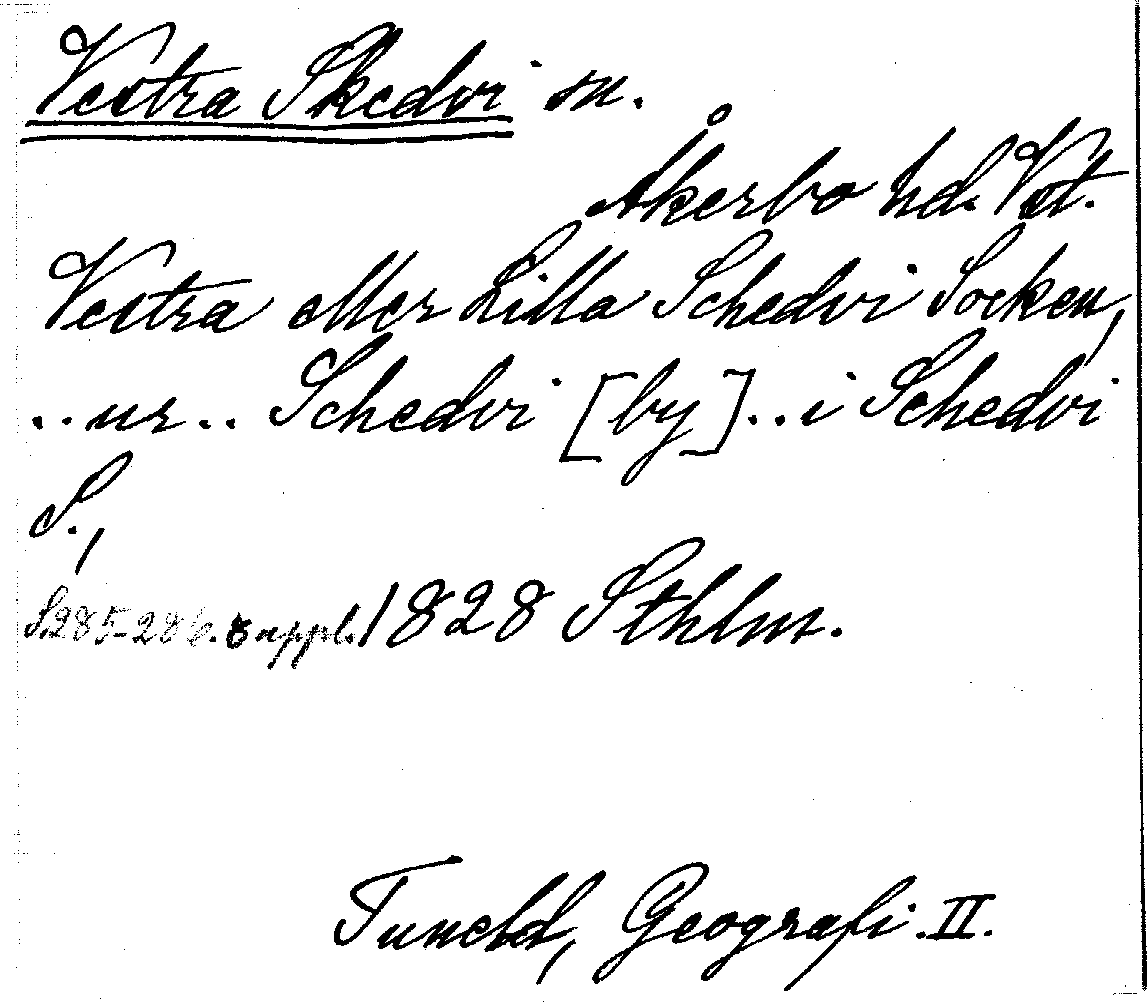 Vestra Skedvi sn.
Åkerbo hd. Vst.
Vestra eller Lilla Schedvi Socken,
..ur.. Schedvi [by]..i Schedvi
S.,
S.285-286. suppl. 1828 Sthlm.
Tuneld, Geografi. II.